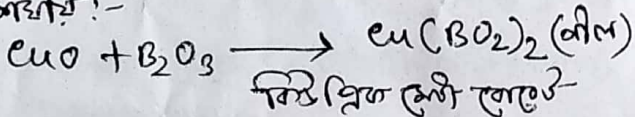 CuO + B₂O₃ ⟶ Cu(BO₂)₂ (নীল)
কিউপ্রিক মেটা বোরেট